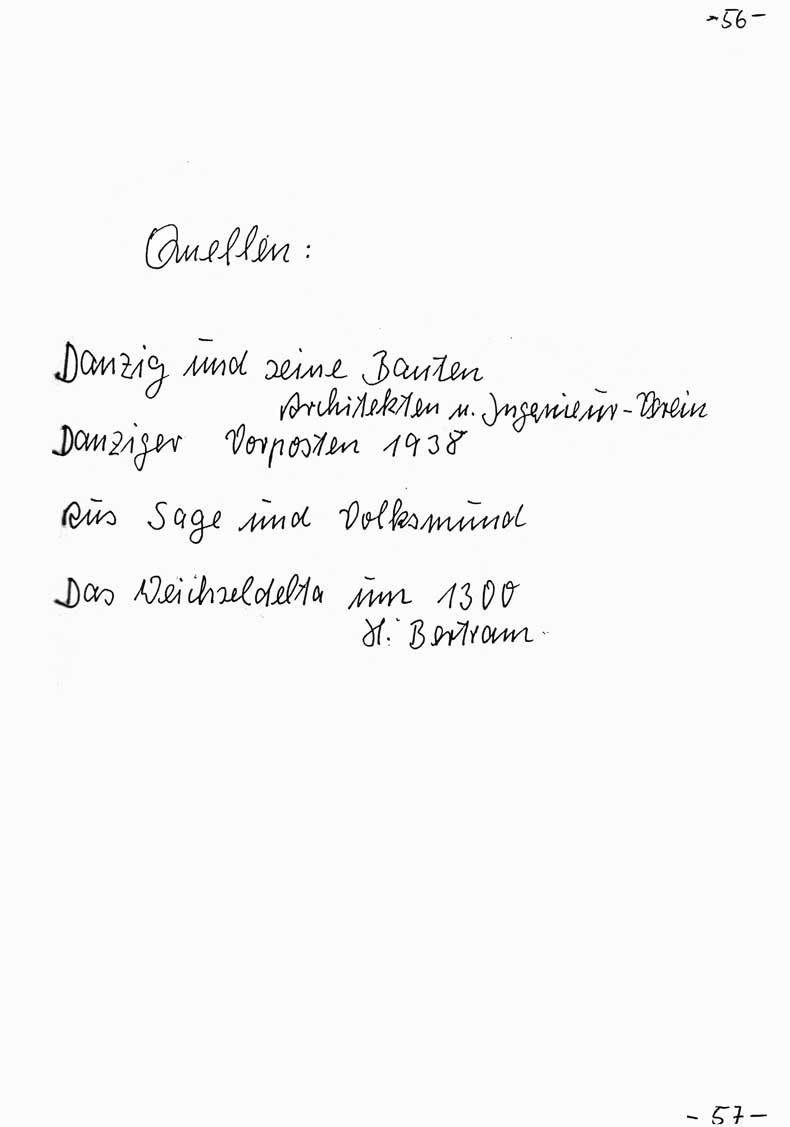 -56-
Quellen:
Danzig und seine Bauten
Architekten u. Ingenieur-Verein
Danziger Vorposten 1938
Aus Sage und Volksmund
Das Weichseldelta um 1300
H. Bertram
- 57 -